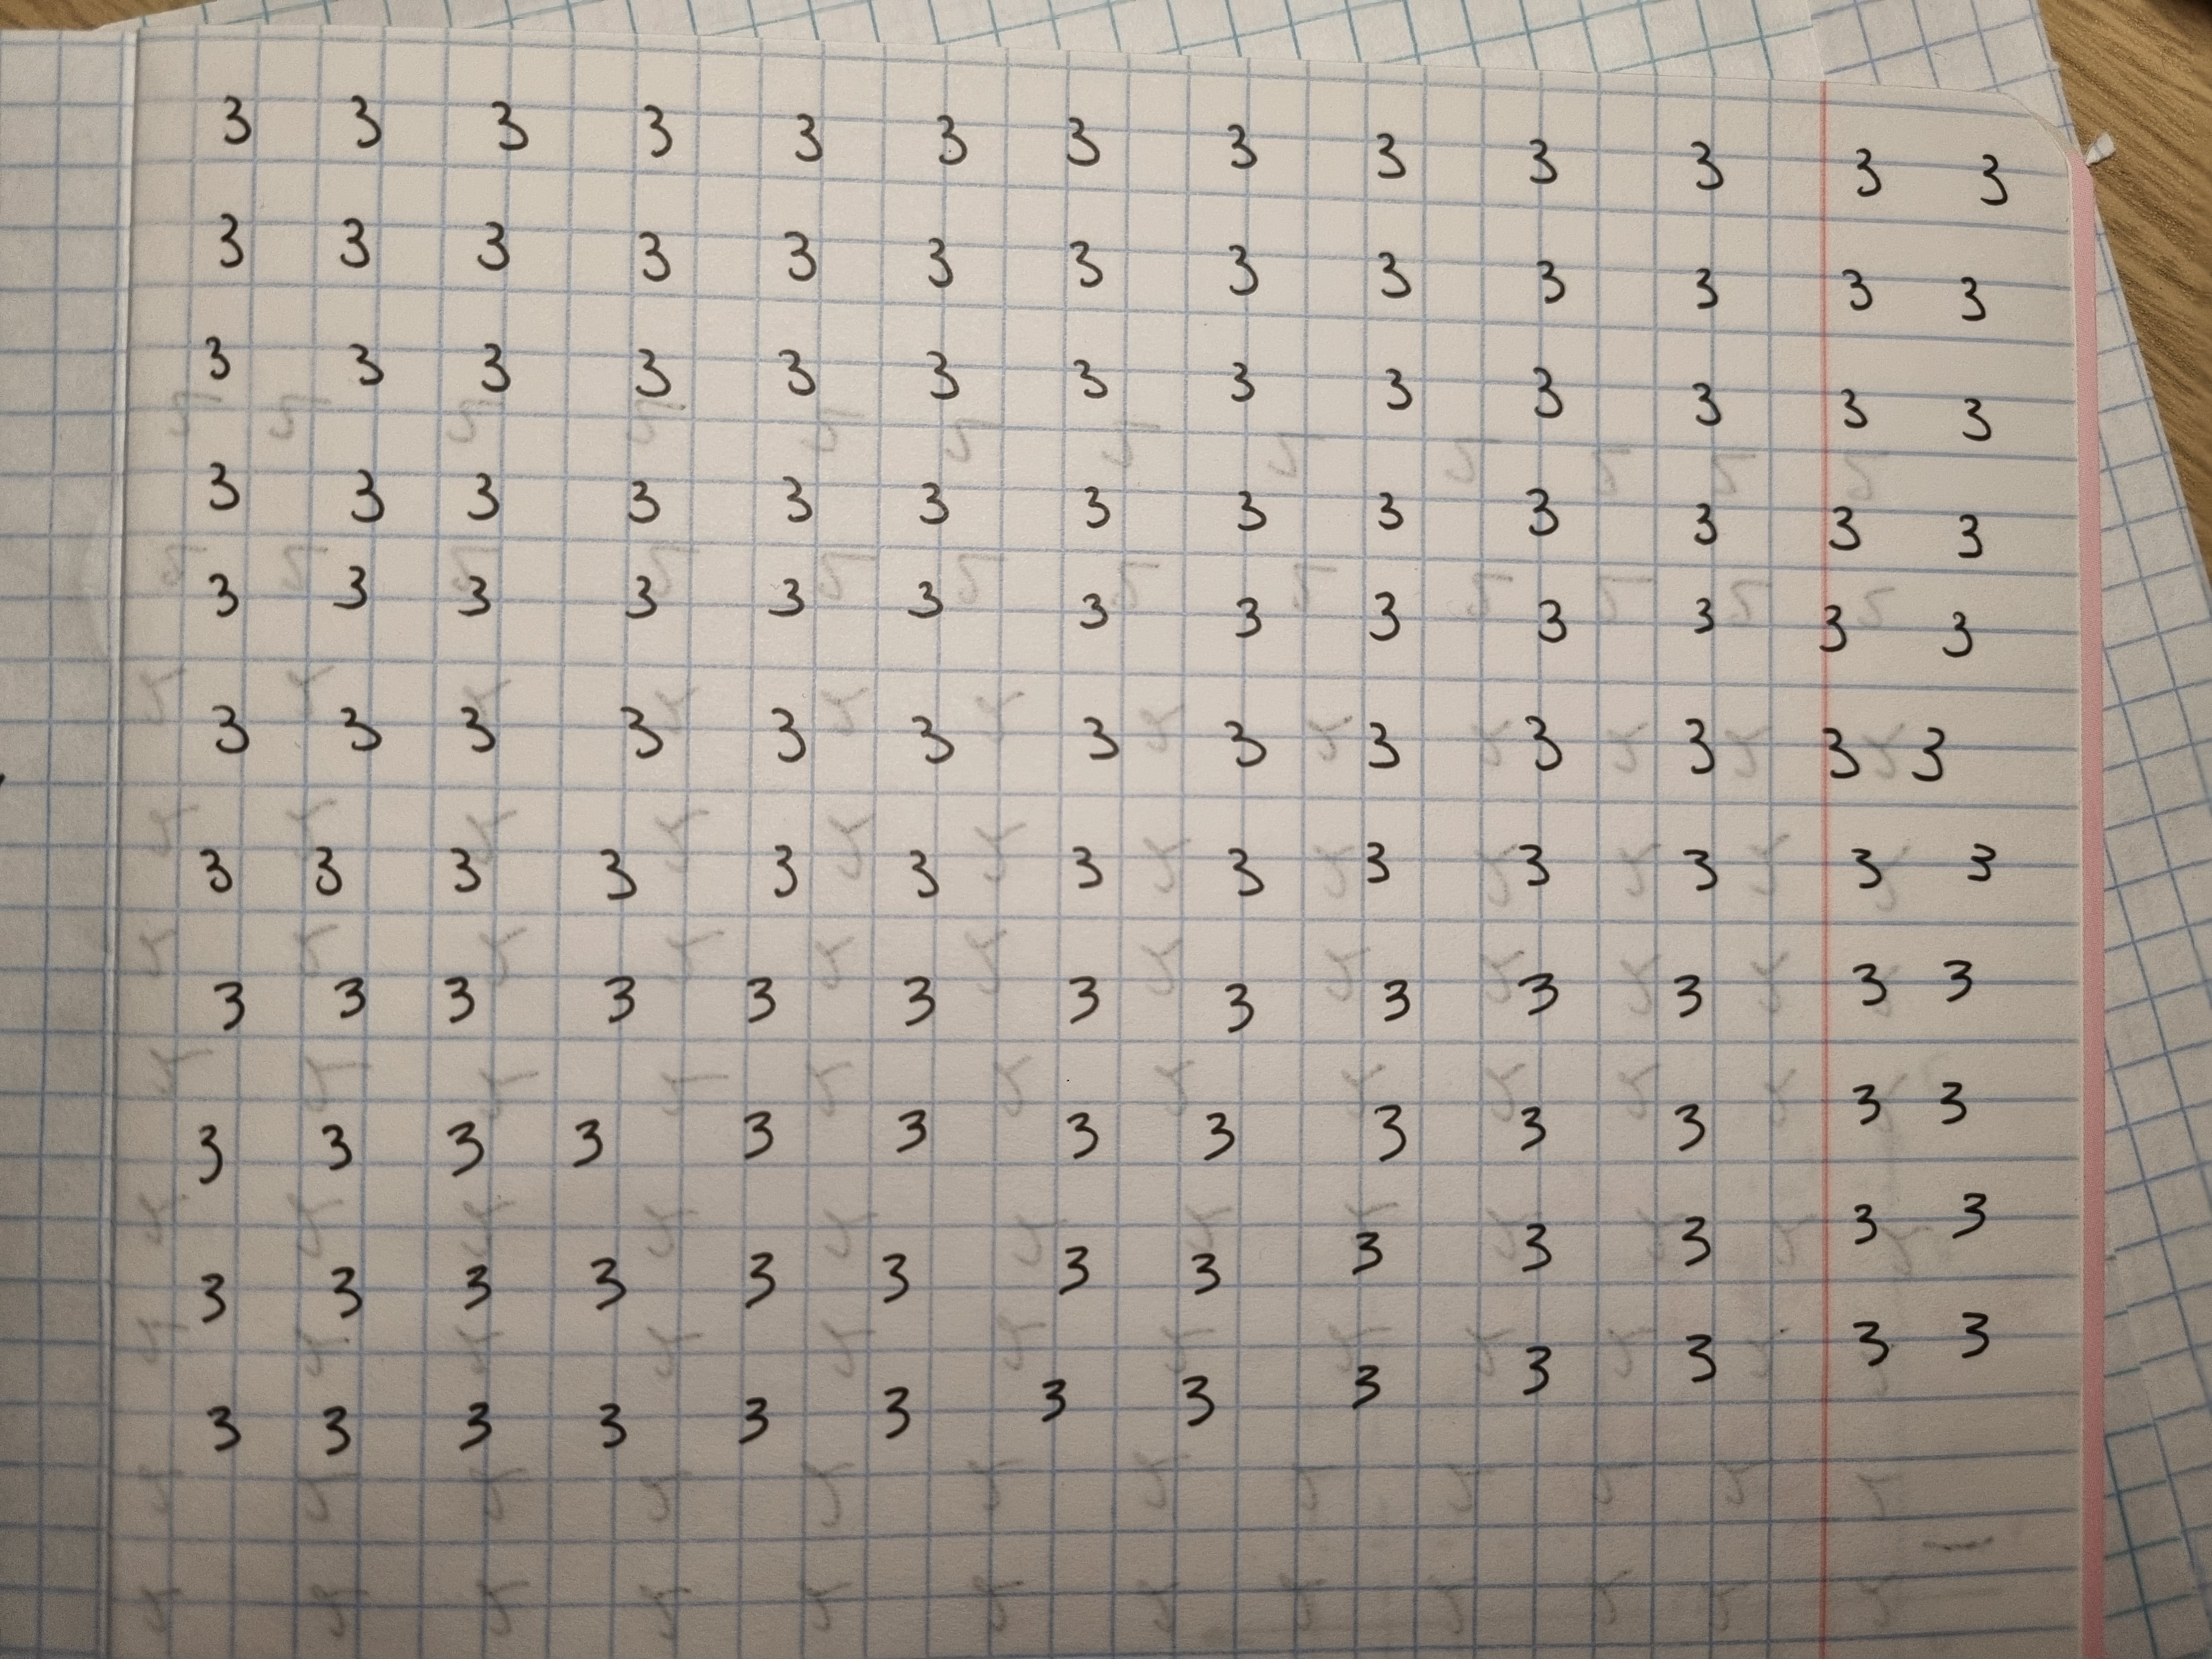 3 3 3 3 3 3 3 3 3 3 3 3 3
3 3 3 3 3 3 3 3 3 3 3 3 3
3 3 3 3 3 3 3 3 3 3 3 3 3
3 3 3 3 3 3 3 3 3 3 3 3 3
3 3 3 3 3 3 3 3 3 3 3 3 3
3 3 3 3 3 3 3 3 3 3 3 3 3
3 3 3 3 3 3 3 3 3 3 3 3 3
3 3 3 3 3 3 3 3 3 3 3 3 3
3 3 3 3 3 3 3 3 3 3 3 3 3
3 3 3 3 3 3 3 3 3 3 3 3 3
3 3 3 3 3 3 3 3 3 3 3 3 3